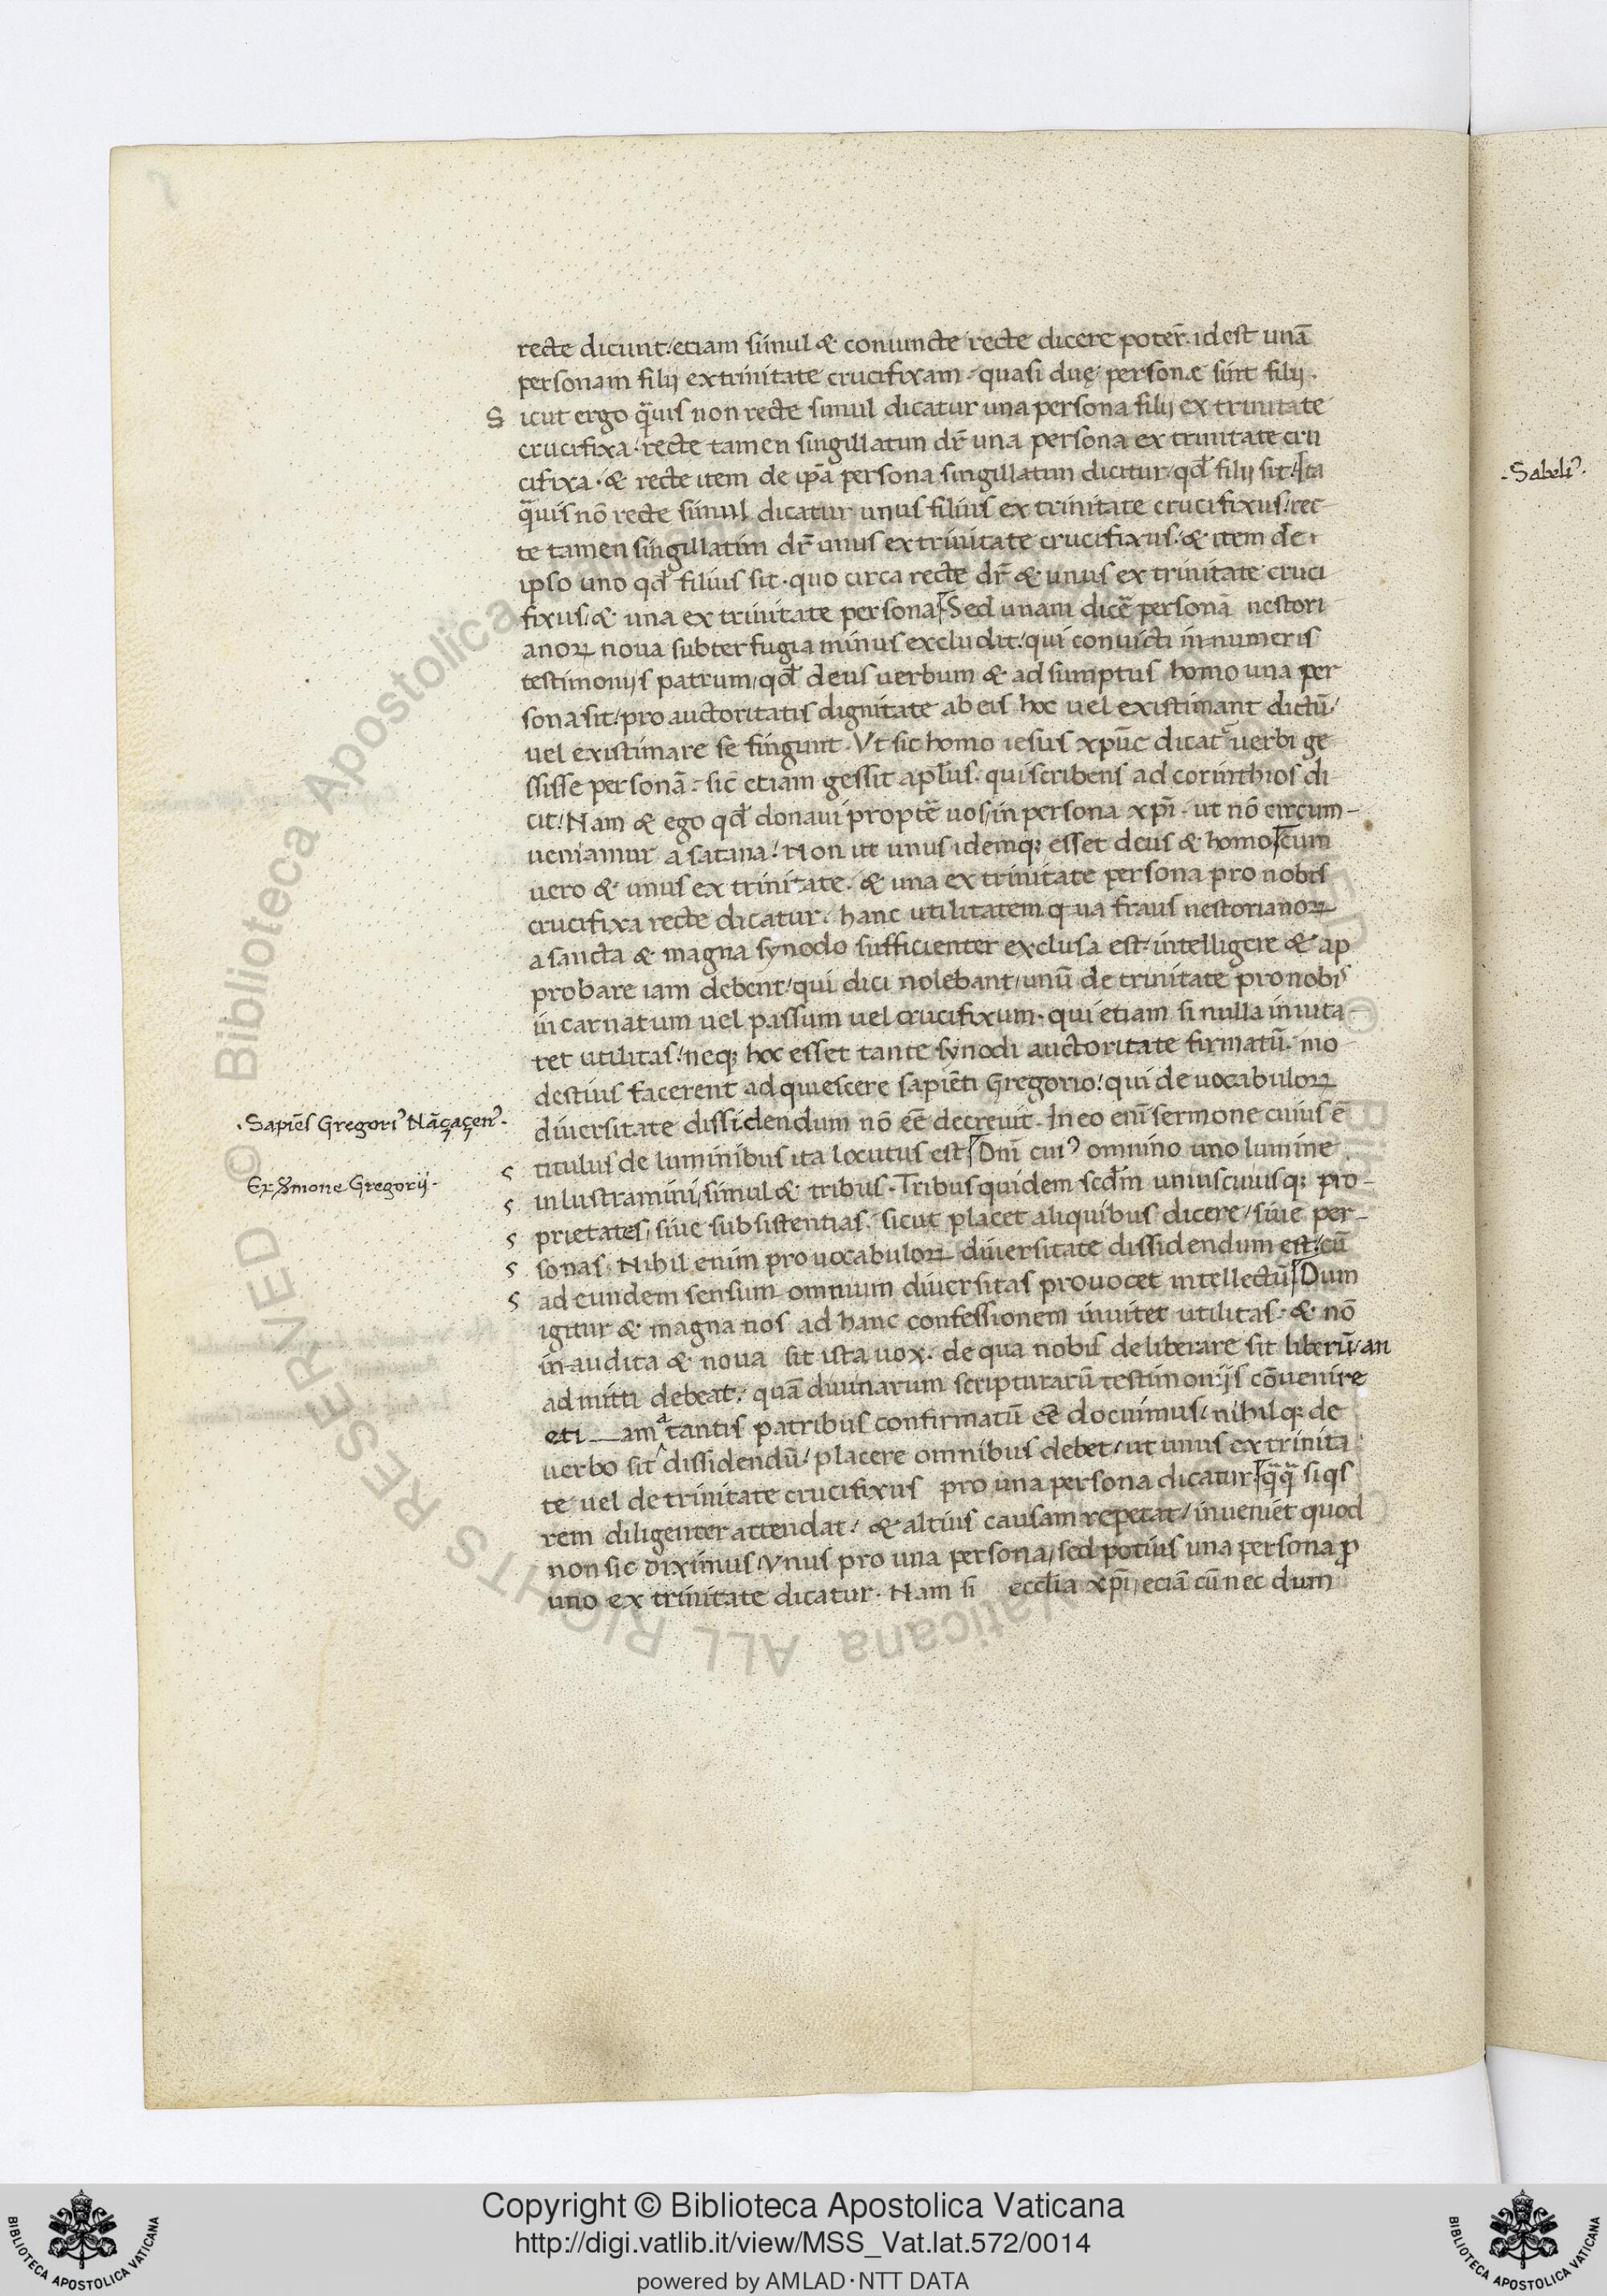 recte dicunt. etiam simul & coniuncte recte dicere poter̄. id est unā
personam filij ex trinitate crucifixam. quasi duę personæ sint filij.
Sicut ergo q̄uis non recte simul dicatur una persona filij ex trinitate
crucifixa. recte tamen singillatim dr̄ una persona ex trinitate cru
cifixa. & recte item de ip̄a persona singillatim dicitur/ qđ filij sit/ Ita
q̄uis nō recte simul dicatur unus filius ex trinitate crucifixus/ rec
te tamen singillatim dr̄ unus ex trinitate crucifixus. & item de
ipso uno qđ filius sit. quo circa recte dr̄ & unus ex trinitate cruci
fixus/ & una ex trinitate persona Sed unam dicē personā nestori
anoꝝ noua subterfugia minus excludit. qui conuicti in numeris
testimonijs patrum/ qđ deus uerbum & adsumptus homo una per
sona sit/ pro auctoritatis dignitate ab eis hoc uel existimant dictū/
uel existimare se fingunt. Vt sic homo iesus xp̄uc dicat᷑ uerbi ge
ssisse personā. sic etiam gessit apl̄us. qui scribens ad corinthios di
cit! Nam & ego qđ donaui propt̄ uos/ in persona xp̄i. ut nō circum-
ueniamur a satana! Non ut unus idemq; esset deus & homo cum
uero & unus ex trinitate. & una ex trinitate persona pro nobis
crucifixa recte dicatur. hanc utilitatem qua fraus nestorianoꝝ
a sancta & magna synodo sufficienter exclusa est/ intelligere & ap
probare iam debent/ qui dici nolebant/ unū de trinitate pro nobis
incarnatum uel passum uel crucifixum. qui etiam si nulla inuita-
tet utilitas/ neq; hoc esset tante synodi auctoritate firmatū. mo
destius facerent adquiescere sapiēti Gregorio! qui de uocabuloꝝ
diuersitate dissidendum nō eē decreuit. In eo eni sermone cuius ē
titulus de luminibus ita locutus est Dnī cui⁹ omnino uno lumine
inlustramini/ simul & tribus. Tribus quidem scđm uniuscuiusq; pro-
prietates/ siue subsistentias. sicut placet aliquibus dicere/ siue per-
sonas. Nihil enim pro uocabuloꝝ diuersitate dissidendum est/ cū
ad eundem sensum omnium diuersitas prouocet intellectū Dum
igitur & magna nos ad hanc confessionem inuitet utilitas. & nō
in audita & noua sit ista uox. de qua nobis deliberare sit liberū/ an
admitti debeat. quā diuinarum scripturarū testimonijs cōuenire
eti—am a tantis patribus confirmatū eē docuimus/ nihilq; de
uerbo sit dissidendū/ placere omnibus debet/ ut unus ex trinita
te uel de trinitate crucifixus pro una persona dicatur q̄q̄ si qs
rem diligenter attendat/ & altius causam repetat/ inueniet quod
non sic diximus/ Vnus pro una persona/ sed potius una persona ꝓ
uno ex trinitate dicatur. Nam si ecclīa xp̄i/ eciā cū nec dum
.Sapiēs Gregori⁹ Nāçaçen⁹.
Ex Sermone Gregorij.
.Sabeli⁹.
Copyright © Biblioteca Apostolica Vaticana
http://digi.vatlib.it/view/MSS_Vat.lat.572/0014
powered by AMLAD·NTT DATA
BIBLIOTECA APOSTOLICA VATICANA
BIBLIOTECA APOSTOLICA VATICANA
© Biblioteca Apostolica Vaticana ALL RIGHTS RESERVED